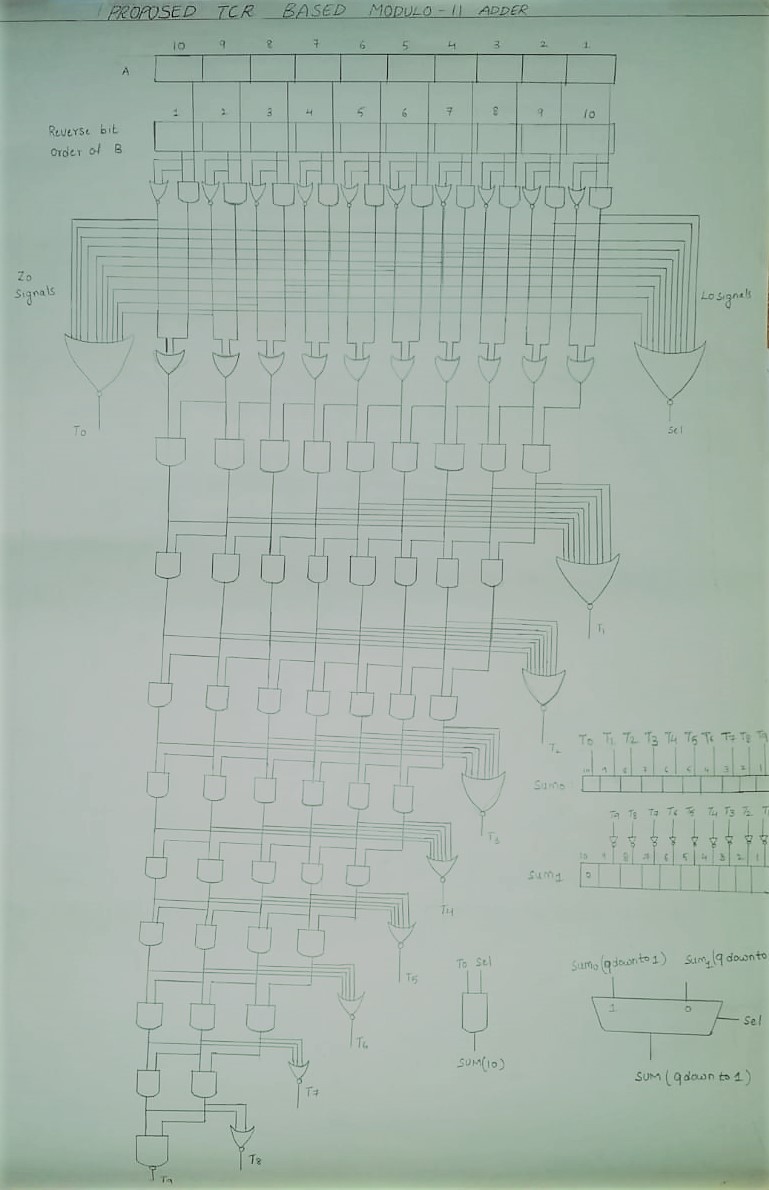 PROPOSED TCR BASED MODULO-11 ADDER
10 9 8 7 6 5 4 3 2 1
A
1 2 3 4 5 6 7 8 9 10
Reverse bit
order of B
Zo
signals
Lo signals
To
Sel
T1
T2
T3
T4
T5
T6
T7
T8
T9
To T1 T2 T3 T4 T5 T6 T7 T8 T9
10 9 8 7 6 5 4 3 2 1
Sumo
T9 T8 T7 T6 T5 T4 T3 T2
10 9 8 7 6 5 4 3 2 1
0
Sum1
To Sel
SUM(10)
Sumo (9 down to 1) Sum1 (9 down to
1 0
Sel
SUM (9 down to 1)